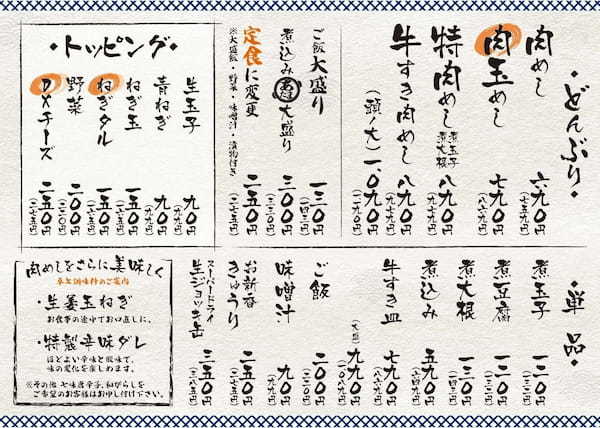 ・どんぶり・
肉めし 六九〇円 (七五九円)
肉玉めし 七九〇円 (八六九円)
特肉めし 煮玉子 煮大根 八九〇円 (九七九円)
牛すき肉めし 八九〇円 (九七九円)
(頭ノ大) 一、〇九〇円 (一一九九円)
ご飯大盛り 一三〇円 (一四三円)
煮込みあたま大盛り 三〇〇円 (三三〇円)
定食に変更 二五〇円 (二七五円)
※大盛飯・野菜・味噌汁・漬物付き
・トッピング・
生玉子 九〇円 (九九円)
青ねぎ 九〇円 (九九円)
ねぎ玉 一五〇円 (一六五円)
ねぎダル 一五〇円 (一六五円)
野菜 二〇〇円 (二二〇円)
DXチーズ 二五〇円 (二七五円)
・単品・
煮玉子 一二〇円 (一三二円)
煮豆腐 一二〇円 (一三二円)
煮大根 一三〇円 (一四三円)
煮込み 五九〇円 (六四九円)
牛すき皿 七九〇円 (八六九円)
(大皿) 九九〇円 (一〇八九円)
ご飯 二〇〇円 (二二〇円)
味噌汁 九〇円 (九九円)
お新香 二五〇円 (二七五円)
きゅうり 二五〇円 (二七五円)
スーパードライ
生ジョッキ缶 三五〇円 (三八五円)
肉めしをさらに美味しく
卓上調味料のご案内
・生姜玉ねぎ
お食事の途中でお口直しに。
・特製辛味ダレ
ほどよい辛味と酸味で、
味の変化を楽しめます。
※その他 七味唐辛子、和がらしを
ご希望のお客様はお申し付け下さい。